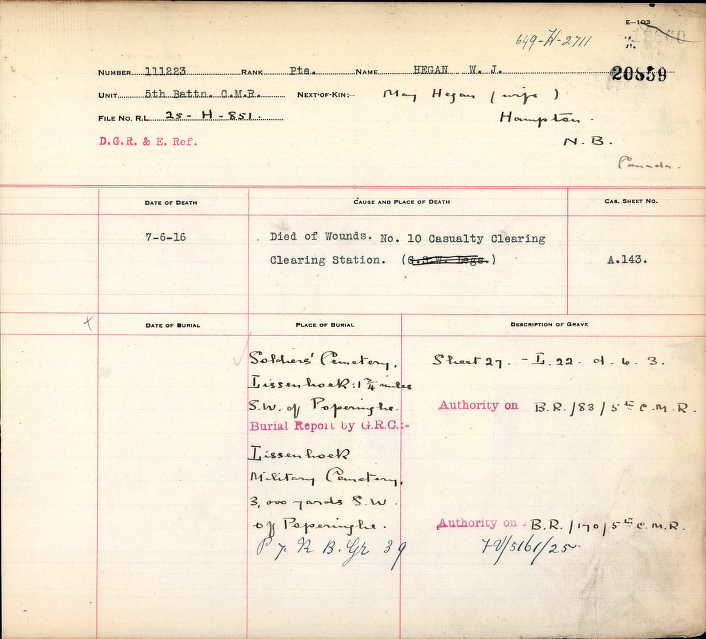 E—103
649-H-2711
NUMBER 111223 RANK Pte. NAME HEGAN W. J.
20859
UNIT 5th Battn. C.M.R. NEXT-OF-KIN:- May Hegan (wife)
FILE NO. R.L. 25-H-851. Hampton.
D.G.R. & E. Ref. N.B.
Canada.
DATE OF DEATH CAUSE AND PLACE OF DEATH CAS. SHEET NO.
7-6-16 Died of Wounds. No. 10 Casualty Clearing
Clearing Station. (G.S.W. Legs.) A.143.
x DATE OF BURIAL PLACE OF BURIAL DESCRIPTION OF GRAVE
Soldiers' Cemetery, Sheet 27. - L. 22. d. 6. 3.
Lissenhoek: 1¾ miles
S.W. of Poperinghe. Authority on B.R./83/5th C.M.R.
Burial Report by G.R.C.:-
Lissenhoek
Military Cemetery,
3,000 yards S.W.
of Poperinghe. Authority on B.R./170/5th C.M.R.
P 7. R B. Gr 39